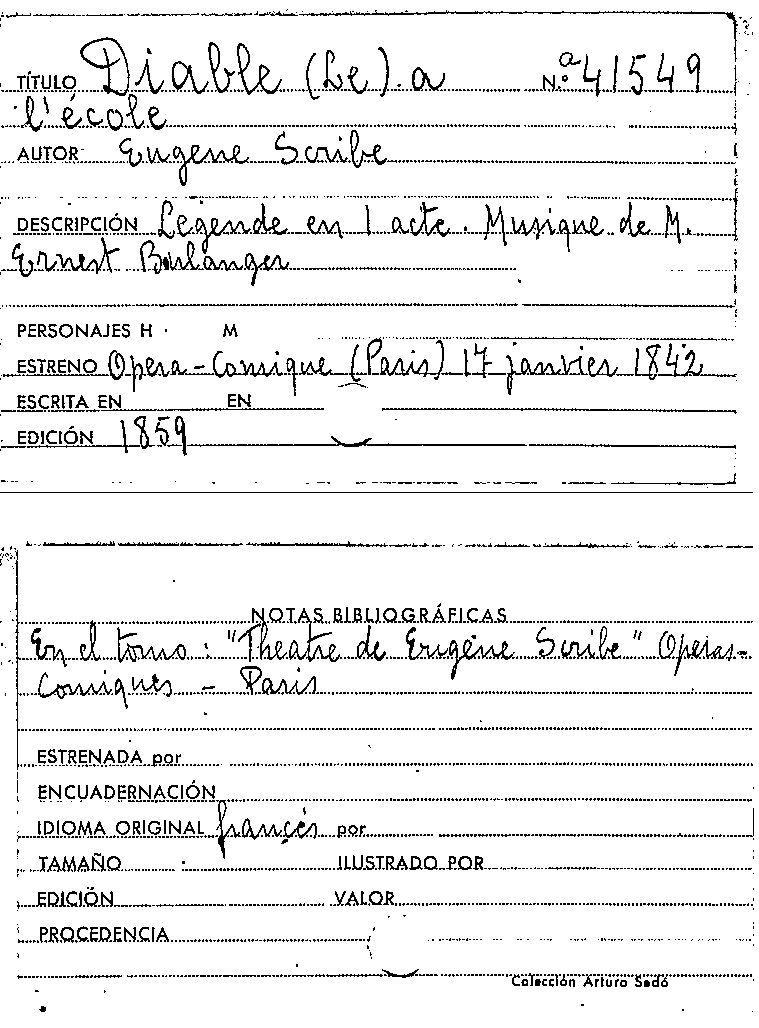 TÍTULO Diable (Le) a N.º a 41549
l'école
AUTOR Eugene Scribe
DESCRIPCIÓN Légende en 1 acte. Musique de M.
Ernest Boulanger
PERSONAJES H M
ESTRENO Opera-Comique (Paris) 17 janvier 1842
ESCRITA EN EN
EDICIÓN 1859
NOTAS BIBLIOGRÁFICAS
En el tomo: "Theatre de Eugène Scribe" Operas-
Comiques - Paris
ESTRENADA por
ENCUADERNACIÓN
IDIOMA ORIGINAL francés por
TAMAÑO ILUSTRADO POR
EDICIÓN VALOR
PROCEDENCIA
Colección Arturo Sedó